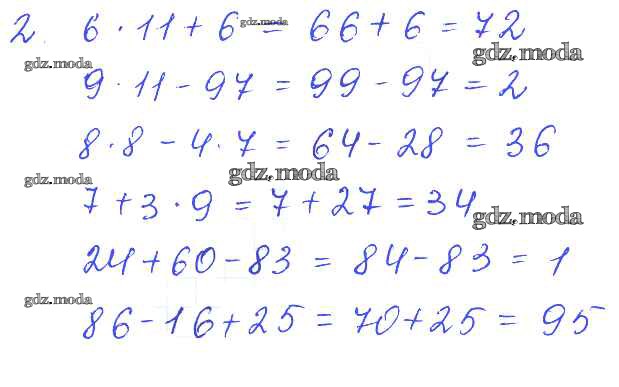 2. 6 · 11 + 6 = 66 + 6 = 72
gdz.moda
gdz.moda
gdz.moda
9 · 11 - 97 = 99 - 97 = 2
8 · 8 - 4 · 7 = 64 - 28 = 36
gdz.moda
gdz.moda
7 + 3 · 9 = 7 + 27 = 34
gdz.moda
24 + 60 - 83 = 84 - 83 = 1
gdz.moda
86 - 16 + 25 = 70 + 25 = 95